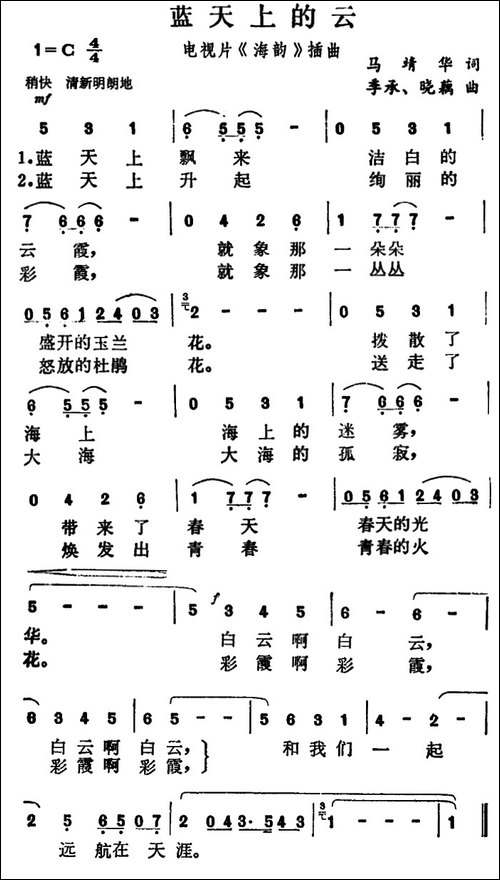 蓝天上的云
1=C 4/4
电视片《海韵》插曲
马靖华 词
稍快 清新明朗地
季承、晓藕 曲
mf
5 3 1 | 6 5 5 5 - | 0 5 3 1 |
1.蓝天上 飘来 洁白的
2.蓝天上 升起 绚丽的
7 6 6 6 - | 0 4 2 6 | 1 7 7 7 - |
云霞, 就象那 一朵朵
彩霞, 就象那 一丛丛
0 5 6 1 2 4 0 3 | 3 2 - - - | 0 5 3 1 |
盛开的玉兰 花。 拨散了
怒放的杜鹃 花。 送走了
6 5 5 5 - | 0 5 3 1 | 7 6 6 6 - |
海上 海上的 迷雾,
大海 大海的 孤寂,
0 4 2 6 | 1 7 7 7 - | 0 5 6 1 2 4 0 3 |
带来了 春天 春天的光
焕发出 青春 青春的火
5 - - - | 5 f 3 4 5 | 6 - - 6 |
华。 白云啊 白云,
花。 彩霞啊 彩霞,
6 3 4 5 | 6 5 5 - - | 5 6 3 1 | 4 - 2 - |
白云啊 白云, 和我们 一起
彩霞啊 彩霞,
2 5 6 5 0 7 | 2 0 4 3· 5 4 3 | 3 1 - - - | 1 ‖
远航在 天涯。